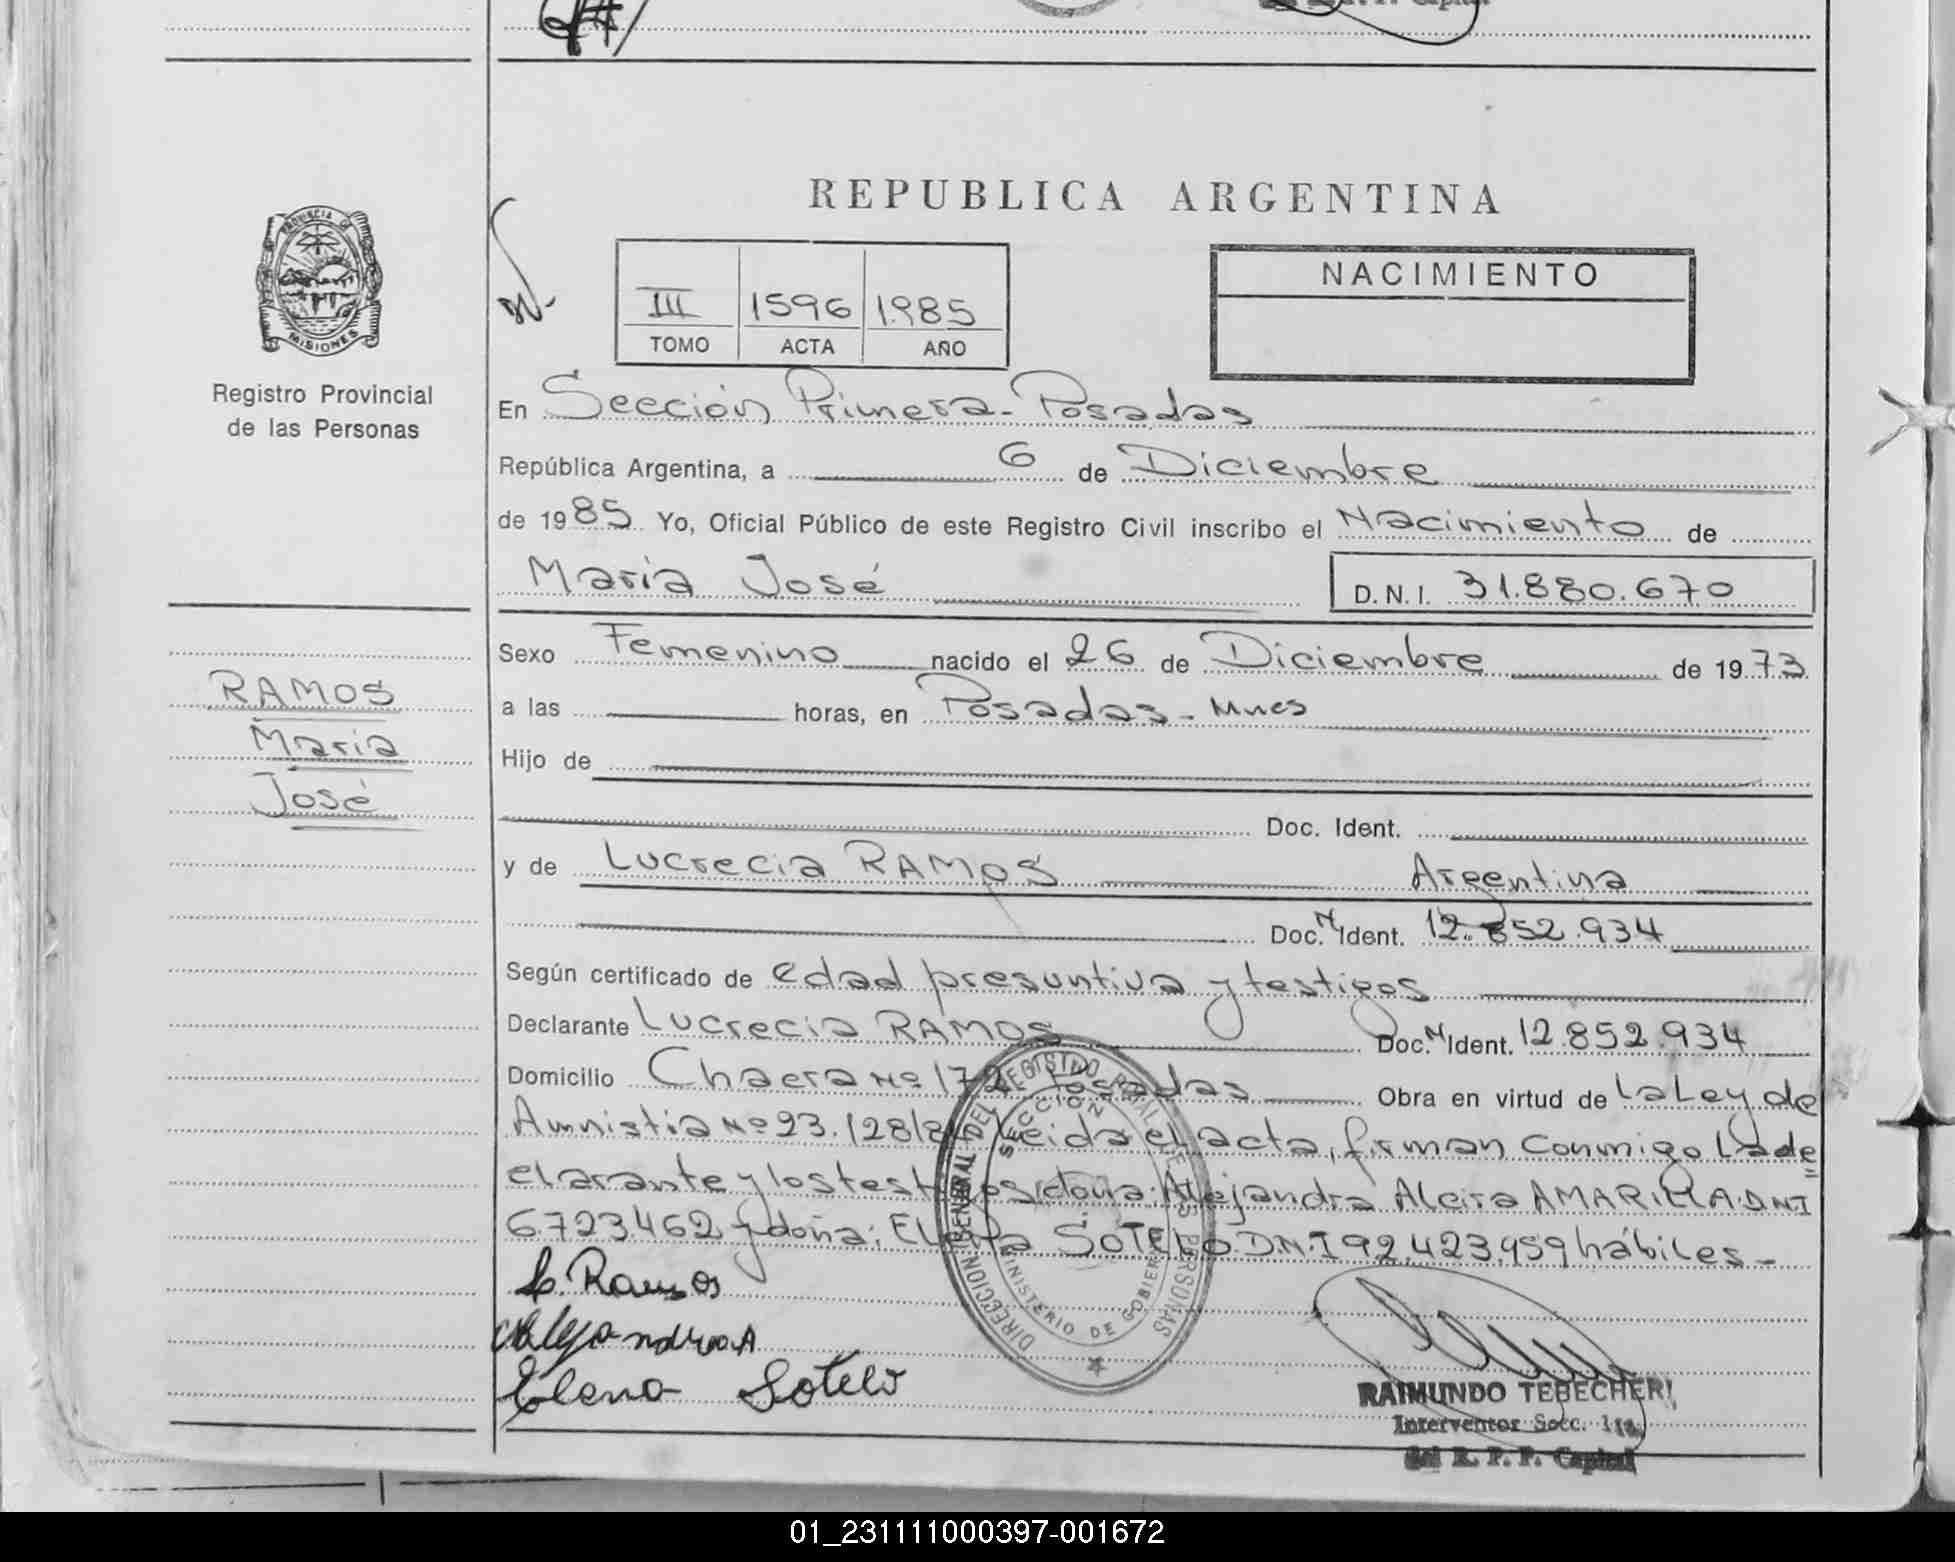 PROVINCIA DE
MISIONES
Registro Provincial
de las Personas
RAMOS
María
José
REPUBLICA ARGENTINA
III 1596 1985
TOMO ACTA AÑO
NACIMIENTO
En Sección Primera - Posadas
República Argentina, a 6 de Diciembre
de 1985 Yo, Oficial Público de este Registro Civil inscribo el Nacimiento de
María José D.N.I. 31.880.670
Sexo Femenino nacido el 26 de Diciembre de 1973
a las horas, en Posadas - Mnes
Hijo de
Doc. Ident.
y de Lucrecia RAMOS Argentina
Doc. N Ident. 12.852.934
Según certificado de edad presuntiva y testigos
Declarante Lucrecia RAMOS Doc. N Ident. 12.852.934
Domicilio Chacra Nº 172 Posadas Obra en virtud de la Ley de
Amnistia Nº 23.128/8 Leida el acta, firman conmigo la de
clarante y los testigos doña: Alejandra Alcira AMARILLA DNI
6723.462 y doña: Elena SOTELO D.N.I 92.423.959 hábiles -
L. Ramos
Alejandra A
Elena Sotelo
DIRECCION GENERAL DEL REGISTRO PCIAL DE LAS PERSONAS
SECCION 1
MINISTERIO DE GOBIERNO
RAIMUNDO TEBECHERI
Interventor Secc. 1ra.
del R. P. P. Capital
01_231111000397-001672